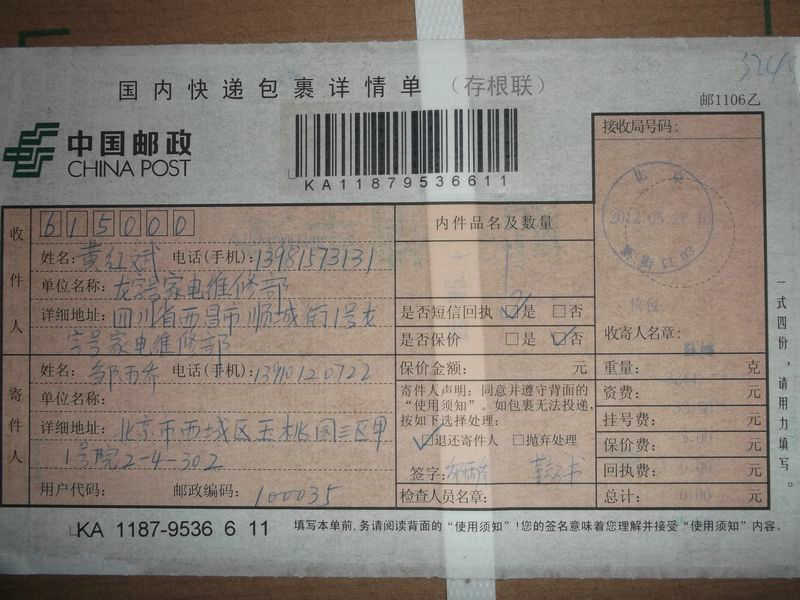 国内快递包裹详情单（存根联）
邮1106乙
中国邮政
CHINA POST
KA11879536611
接收局号码：
收件人
615000
姓名：黄红斌 电话(手机)：13981573131
单位名称：龙字号家电维修部
详细地址：四川省西昌市顺城街1号龙
字号家电维修部
寄件人
姓名：邹西乔 电话(手机)：13910120722
单位名称：
详细地址：北京市西城区玉桃园三区甲
1号院2-4-302
用户代码： 邮政编码：100035
内件品名及数量
是否短信回执 ☑是 □否
是否保价 □是 ☑否
保价金额： 元
寄件人声明：同意并遵守背面的
“使用须知”。如包裹无法投递，
按如下选择处理：
☑退还寄件人 □抛弃处理
签字：
检查人员名章：
收寄人名章：
重量： 克
资费： 元
挂号费： 元
保价费： 元
回执费： 元
总计： 元
一式四份，请用力填写。
KA 1187-9536 6 11
填写本单前，务请阅读背面的“使用须知”！您的签名意味着您理解并接受“使用须知”内容。